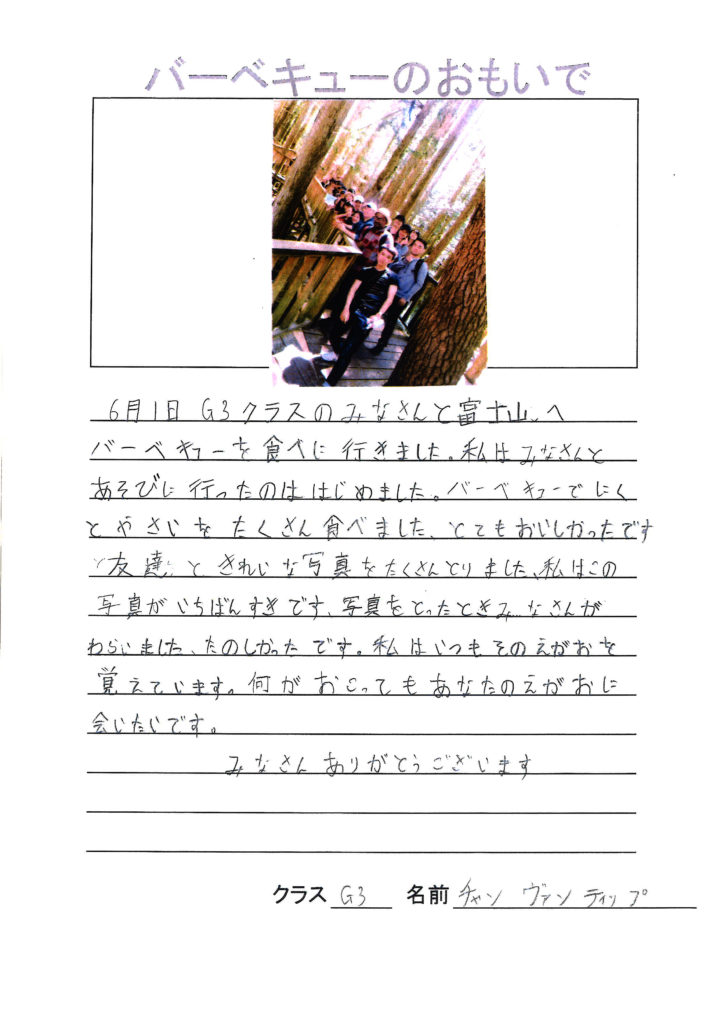 バーベキューのおもいで
6月1日 G3クラスのみなさんと富士山へ
バーベキューを食べに行きました。私はみなさんと
あそびに行ったのははじめました。バーベキューでにく
とやさいをたくさん食べました、とてもおいしかったです
友達ときれいな写真をたくさんとりました、私はこの
写真がいちばんすきです、写真をとったときみなさんが
わらいました、たのしかったです。私はいつもそのえがおを
覚えています。何がおこってもあなたのえがおに
会いたいです。
みなさんありがとうございます
クラス G3 名前 チャン ヴァン ティップ